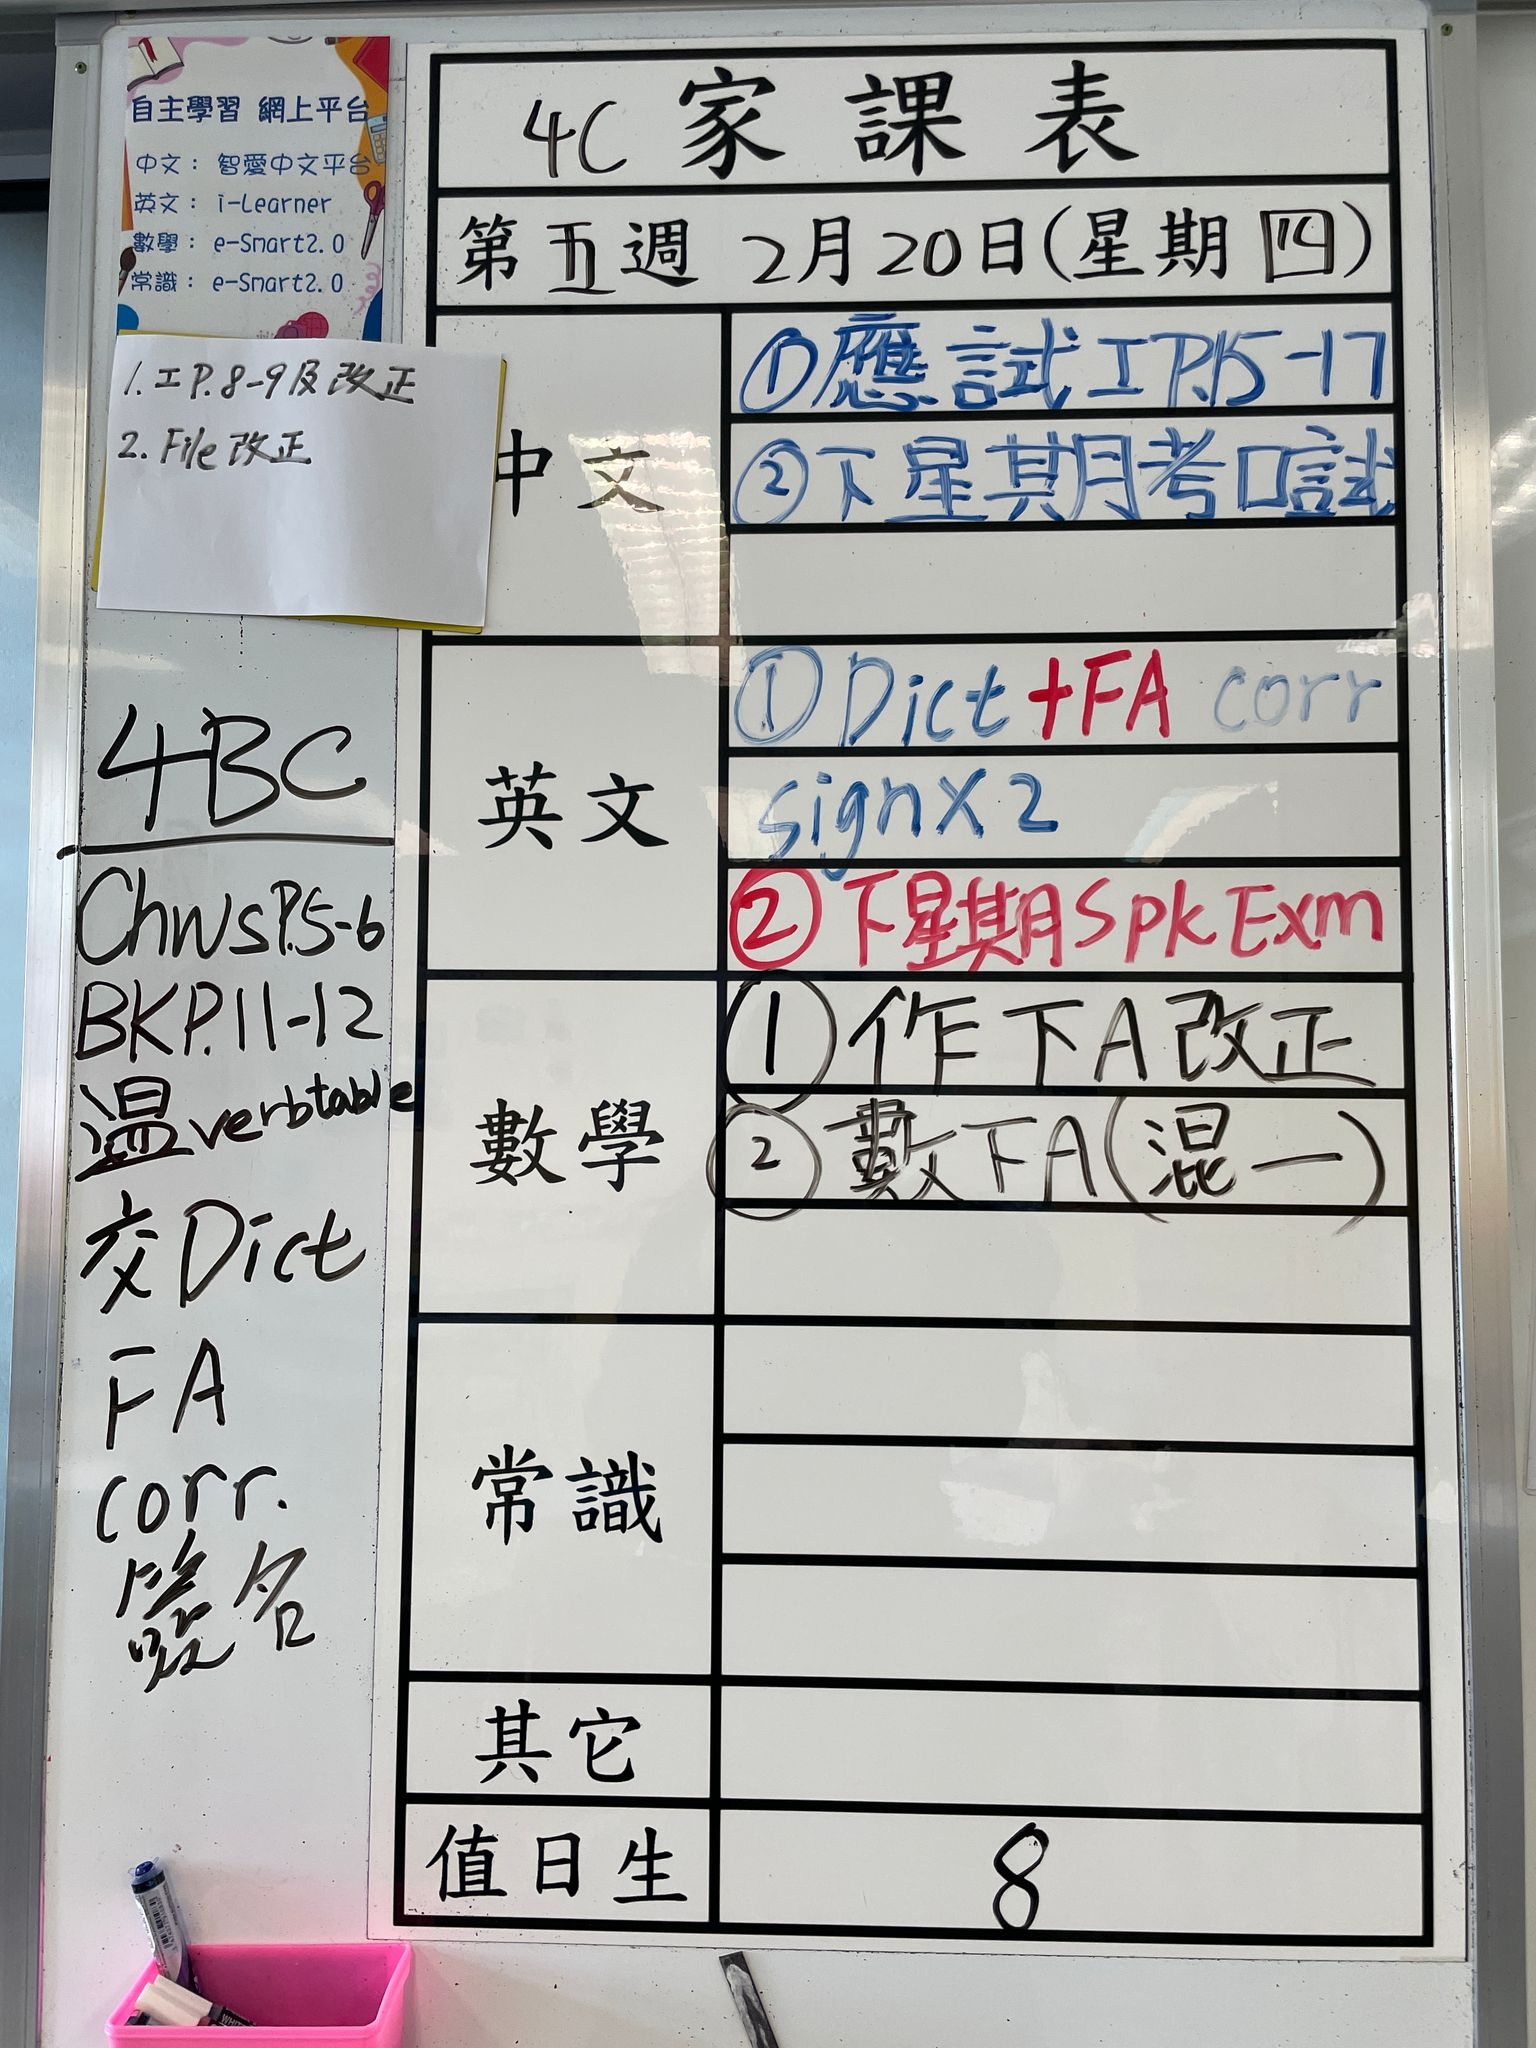 自主學習 網上平台
中文： 智愛中文平台
英文： i-Learner
數學： e-Smart2.0
常識： e-Smart2.0
1. 工P.8-9及改正
2. File改正
4BC
Chws P.5-6
BK P.11-12
溫 verb table
交 Dict
FA
corr.
簽名
4C 家課表
第五週 2月20日(星期四)
中文
①應試工P.15-17
②下星期月考口試
英文
①Dict+FA corr
sign×2
②下星期Spk Exm
數學
①作下A改正
②數下A(混一)
常識
其它
值日生
8